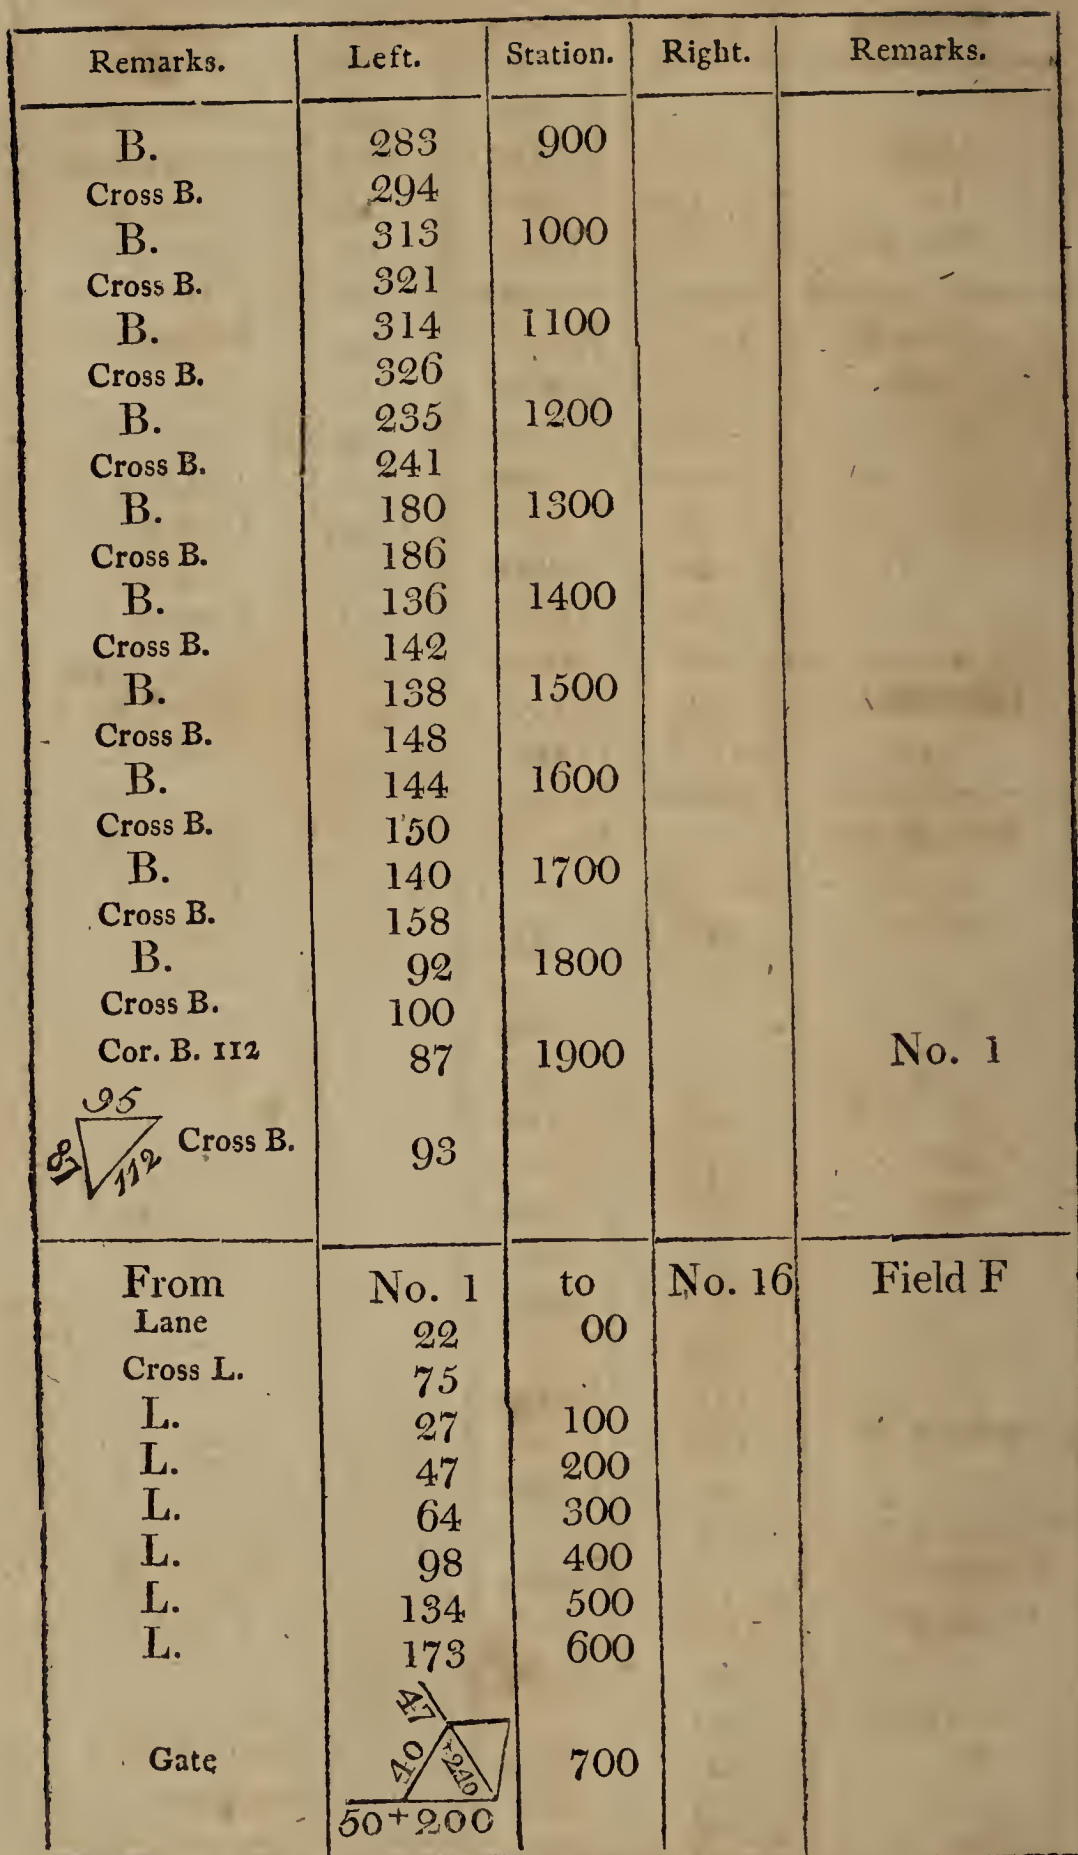 Remarks. Left. Station. Right. Remarks.
B. 283 900
Cross B. 294
B. 313 1000
Cross B. 321
B. 314 1100
Cross B. 326
B. 235 1200
Cross B. 241
B. 180 1300
Cross B. 186
B. 136 1400
Cross B. 142
B. 138 1500
Cross B. 148
B. 144 1600
Cross B. 150
B. 140 1700
Cross B. 158
B. 92 1800
Cross B. 100
Cor. B. 112 87 1900 No. 1
95
87 112 Cross B. 93
From No. 1 to No. 16 Field F
Lane 22 00
Cross L. 75
L. 27 100
L. 47 200
L. 64 300
L. 98 400
L. 134 500
L. 173 600
47
Gate 40 +240 700
50+200